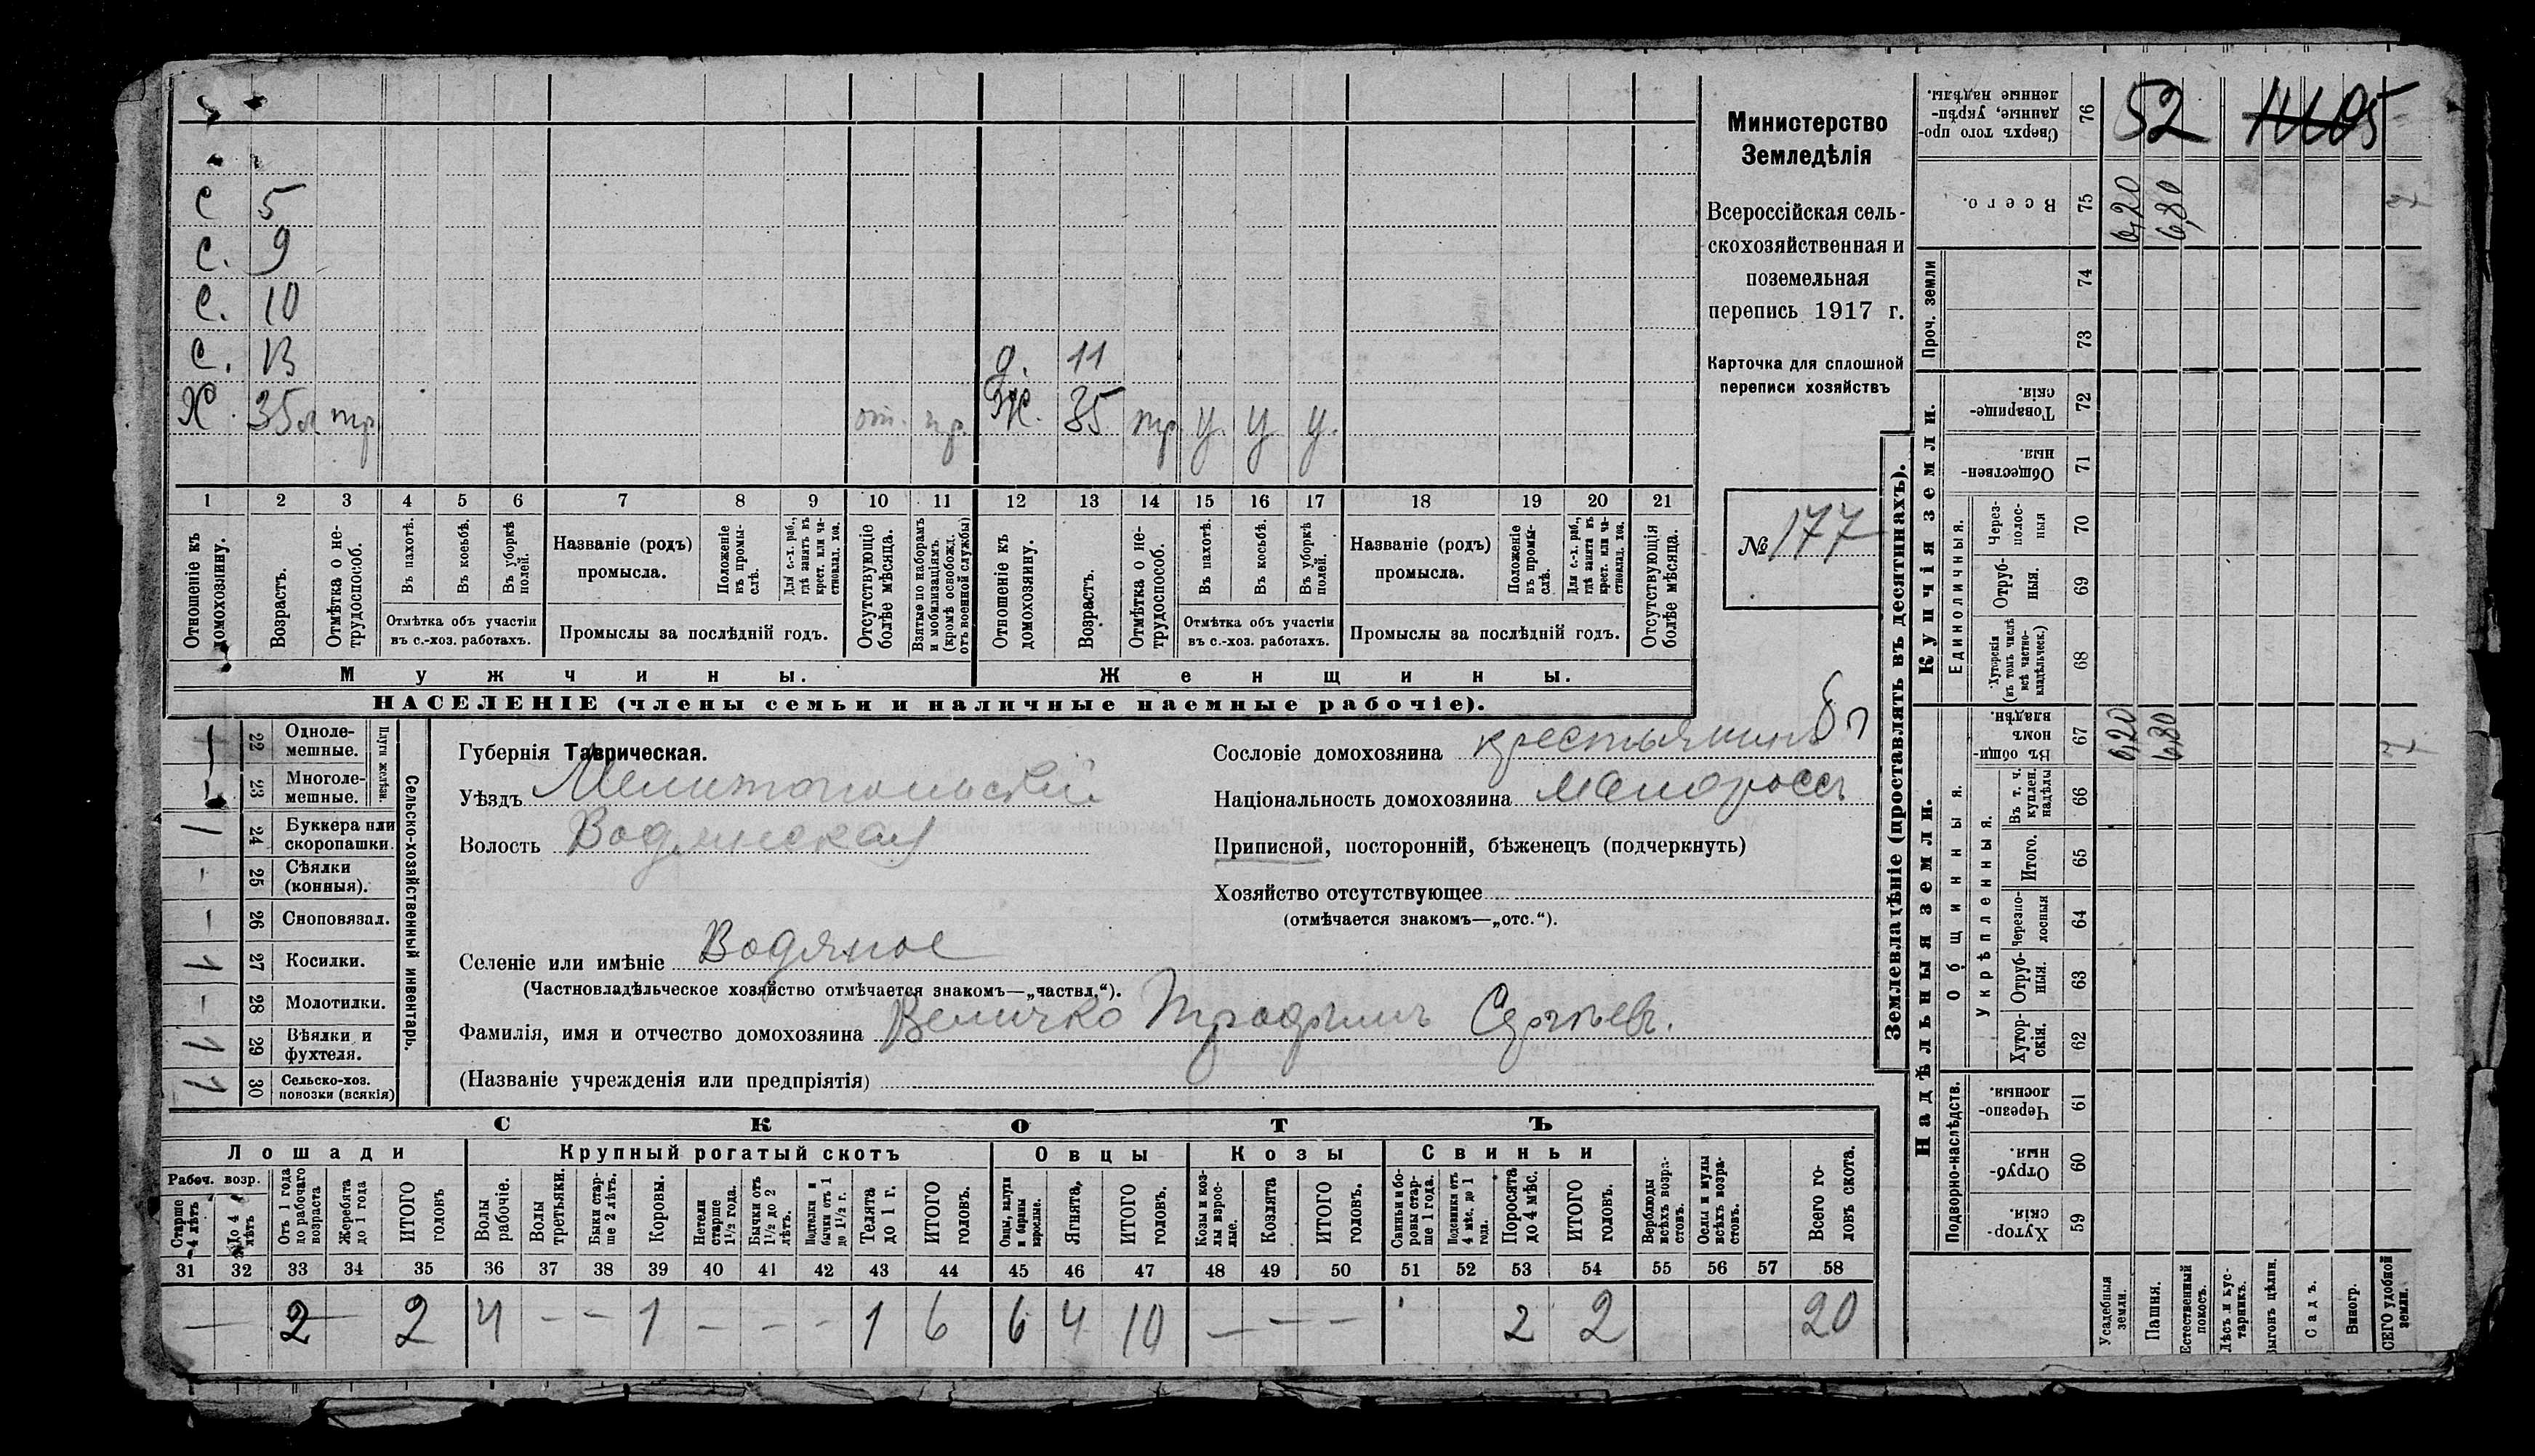 С 5
С. 9
С. 10
С. 13
д. 11
Х 35 л тр. от. пр. Ж. 35 тр. У. У У.
1 2 3 4 5 6 7 8 9 10 11 12 13 14 15 16 17 18 19 20 21
Отношеніе къ домохозяину.
Возрастъ.
Отмѣтка о нетрудоспособ.
Въ пахотѣ.
Въ косьбѣ.
Въ уборкѣ полей.
Отмѣтка объ участіи
въ с.-хоз. работахъ.
Названіе (родъ)
промысла.
Положеніе въ промыслѣ.
Для с.-х. раб., гдѣ занятъ въ крест. или частновлад. хоз.
Промыслы за послѣдній годъ.
Отсутствующіе болѣе мѣсяца.
Взятые по наборамъ и мобилизаціямъ (кромѣ освобожд. отъ военной службы)
Отношеніе къ домохозяину.
Возрастъ.
Отмѣтка о нетрудоспособ.
Въ пахотѣ.
Въ косьбѣ.
Въ уборкѣ полей.
Отмѣтка объ участіи
въ с.-хоз. работахъ.
Названіе (родъ)
промысла.
Положеніе въ промыслѣ.
Для с.-х. раб., гдѣ занята въ крест. или частновлад. хоз.
Промыслы за послѣдній годъ.
Отсутствующія болѣе мѣсяца.
Мужчины.
Женщины.
НАСЕЛЕНІЕ (члены семьи и наличные наемные рабочіе).
Министерство
Земледѣлія
Всероссійская сель-
скохозяйственная и
поземельная
перепись 1917 г.
Карточка для сплошной
переписи хозяйствъ
№ 177
Сельско-хозяйственный инвентарь.
Плуги желѣзн.
22 Однолемешные.
23 Многолемешные.
24 Буккера или скоропашки.
25 Сѣялки (конныя).
26 Сноповязал.
27 Косилки.
28 Молотилки.
29 Вѣялки и фухтеля.
30 Сельско-хоз. повозки (всякія)
Губернія Таврическая.
Уѣздъ Мелитопольскій
Волость Водянская
Селеніе или имѣніе Водяное
(Частновладѣльческое хозяйство отмѣчается знакомъ—„частвл.“).
Фамилія, имя и отчество домохозяина Величко Трофимъ Сергѣевъ.
(Названіе учрежденія или предпріятія)
Сословіе домохозяина крестьянинъ
Національность домохозяина малороссъ
Приписной, посторонній, бѣженецъ (подчеркнуть)
Хозяйство отсутствующее
(отмѣчается знакомъ—„отс.“).
СКОТЪ
Лошади
Крупный рогатый скотъ
Овцы
Козы
Свиньи
Рабоч. возр.
Старше 4 лѣтъ
До 4 лѣтъ
Отъ 1 года до рабочаго возраста
Жеребята до 1 года
ИТОГО головъ
Волы рабочіе.
Волы третьяки.
Быки старше 2 лѣтъ.
Коровы.
Нетели старше 1½ года.
Бычки отъ 1½ до 2 лѣтъ.
Подтелки и бычки отъ 1 до 1½ г.
Телята до 1 г.
ИТОГО головъ.
Овцы, валухи и бараны взрослые.
Ягнята.
ИТОГО головъ.
Козы и козлы взрослые.
Козлята
ИТОГО головъ.
Свиньи и боровы старше 1 года.
Подсвинки отъ 4 мѣс. до 1 года.
Поросята до 4 мѣс.
ИТОГО головъ.
Верблюды всѣхъ возрастовъ.
Ослы и мулы всѣхъ возрастовъ.
Всего головъ скота.
31 32 33 34 35 36 37 38 39 40 41 42 43 44 45 46 47 48 49 50 51 52 53 54 55 56 57 58
— 2 — 2 4 — — — 1 — — — 1 6 6 4 10 — — — 2 2 20
Землевладѣніе (проставлять въ десятинахъ).
Надѣльныя земли.
Купчія земли.
Проч. земли
Подворно-наслѣдств.
Общинныя.
Укрѣпленныя.
Единоличныя.
59 Хуторскія.
60 Отрубныя.
61 Черезполосныя.
62 Хуторскія.
63 Отрубныя.
64 Черезполосныя
65 Итого.
66 Въ т. ч. куплен. надѣлы
67 Въ общинномъ владѣн. 6,20 6,80
68 Хуторскія (въ томъ числѣ всѣ частновладѣльческ.)
69 Отрубныя.
70 Черезполосныя
71 Общественныя.
72 Товарищескія.
73
74
75 Всего. 6,20 6,80
76 Сверхъ того проданные, укрѣпленные надѣлы.
52
Усадебныя земли.
Пашня.
Естественный покосъ.
Лѣсъ и кустарникъ.
Выгонъ цѣлин.
Садъ.
Виногр.
ВСЕГО удобной земли.